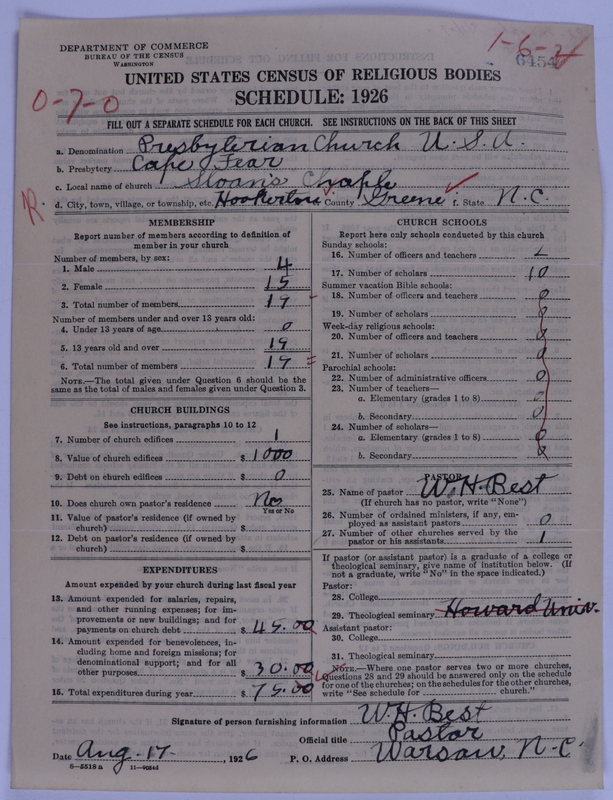 DEPARTMENT OF COMMERCE
BUREAU OF THE CENSUS
WASHINGTON
1-6-2
6454
UNITED STATES CENSUS OF RELIGIOUS BODIES
SCHEDULE: 1926
0-7-0
FILL OUT A SEPARATE SCHEDULE FOR EACH CHURCH. SEE INSTRUCTIONS ON THE BACK OF THIS SHEET
a. Denomination Presbyterian Church U. S. A.
b. Presbytery Cape Fear
c. Local name of church Sloan's Chaple
d. City, town, village, or township, etc. Hookerton County Greene f. State N.C.
MEMBERSHIP
Report number of members according to definition of
member in your church
Number of members, by sex:
1. Male 4
2. Female 15
3. Total number of members 19
Number of members under and over 13 years old:
4. Under 13 years of age 0
5. 13 years old and over 19
6. Total number of members 19
NOTE.—The total given under Question 6 should be the
same as the total of males and females given under Question 3.
CHURCH BUILDINGS
See instructions, paragraphs 10 to 12
7. Number of church edifices 1
8. Value of church edifices $ 1000
9. Debt on church edifices $ 0
10. Does church own pastor's residence No
Yes or No
11. Value of pastor's residence (if owned by
church) $
12. Debt on pastor's residence (if owned by
church) $
EXPENDITURES
Amount expended by your church during last fiscal year
13. Amount expended for salaries, repairs,
and other running expenses; for im-
provements or new buildings; and for
payments on church debt $ 45.00
14. Amount expended for benevolences, in-
cluding home and foreign missions; for
denominational support; and for all
other purposes $ 30.00
15. Total expenditures during year $ 75.00
CHURCH SCHOOLS
Report here only schools conducted by this church
Sunday schools:
16. Number of officers and teachers 2
17. Number of scholars 10
Summer vacation Bible schools:
18. Number of officers and teachers 0
19. Number of scholars 0
Week-day religious schools:
20. Number of officers and teachers 0
21. Number of scholars 0
Parochial schools:
22. Number of administrative officers 0
23. Number of teachers—
a. Elementary (grades 1 to 8) 0
b. Secondary 0
24. Number of scholars—
a. Elementary (grades 1 to 8) 0
b. Secondary 0
PASTOR
25. Name of pastor W. H. Best
(If church has no pastor, write "None")
26. Number of ordained ministers, if any, em-
ployed as assistant pastors 0
27. Number of other churches served by the
pastor or his assistants 1
If pastor (or assistant pastor) is a graduate of a college or
theological seminary, give name of institution below. (If
not a graduate, write "No" in the space indicated.)
Pastor:
28. College
29. Theological seminary Howard Univ.
Assistant pastor:
30. College
31. Theological seminary
NOTE.—Where one pastor serves two or more churches,
Questions 28 and 29 should be answered only on the schedule
for one of the churches; on the schedules for the other churches,
write "See schedule for church."
Signature of person furnishing information W. H. Best
Official title Pastor
Date Aug. 17, 1926 P. O. Address Warsaw, N.C.
8-5518 a